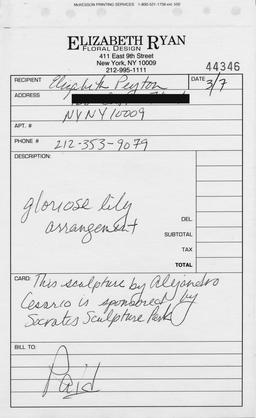 McKESSON PRINTING SERVICES 1-800-521-1758 ext. 550
ELIZABETH RYAN
FLORAL DESIGN
411 East 9th Street
New York, NY 10009
212-995-1111
44346
RECIPIENT Elizabeth Peyton DATE 3/7
ADDRESS
NY NY 10009
APT. #
PHONE # 212-353-9079
DESCRIPTION:
gloriose lily
arrangement
DEL.
SUBTOTAL
TAX
TOTAL
CARD: This sculpture by Alejandro
Cesarco is sponsored by
Socrates Sculpture Park
BILL TO:
Paid